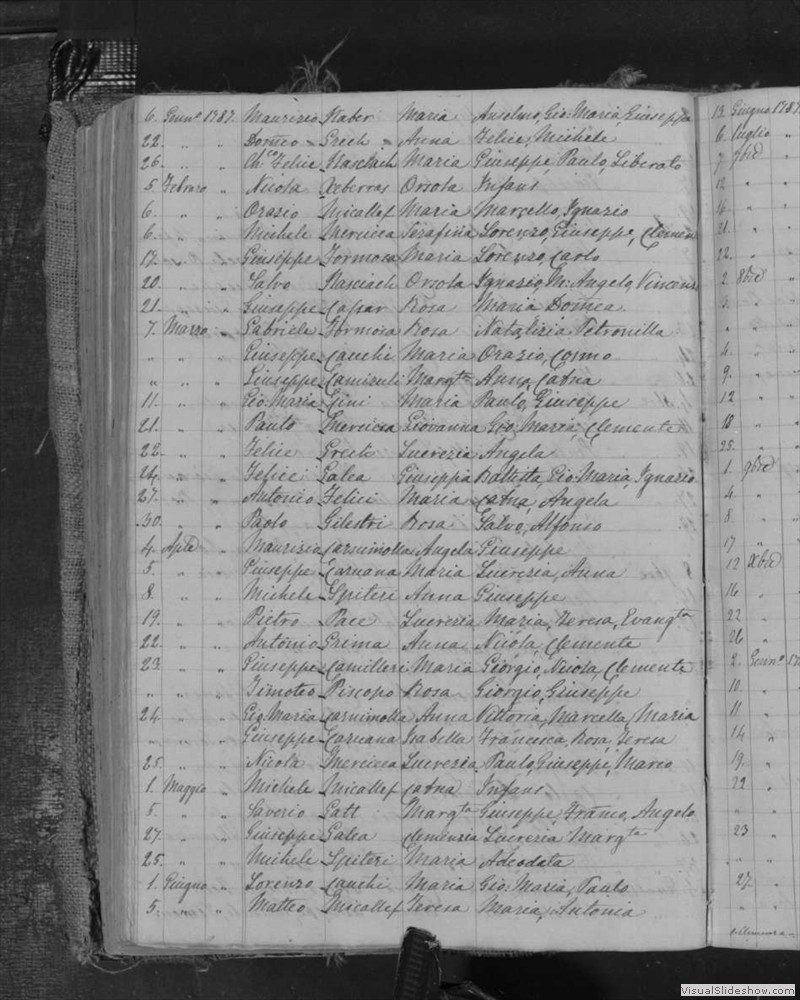 6. Genn.o 1787. Maurizio Xaber Maria Anselmo, Gio: Maria, Giuseppe
22. " " Dom.co Grech Anna Felice, Michele
26. " " Ch.co Felice Maria Giuseppe, Paulo, Liberato
5 Febraro " Nicola Xeberras Orsola Infans
6. " " Orazio Micallef Maria Marcello, Ignazio
6. " " Michele Mercieca Serafina Lorenzo, Giuseppe, Clemen
17. " " Giuseppe Formosa Maria Lorenzo, Carlo
20. " " Salvo Orsola Ignazio, M: Angelo, Vincenz
21. " " Giuseppe Capar Rosa Maria Dom.ca
7. Marzo " Gabriele Formosa Rosa Natalizia Petronilla
" " " Giuseppe Cauchi Maria Orazio, Cosmo
" " " Giuseppe Marg.ta Anna, Cat.na
11. " " Gio: Maria Gini Maria Paulo, Giuseppe
21. " " Paulo Mercieca Giovanna Gio: Maria, Clemente
22. " " Felice Grech Lucrezia Angela
24. " " Felice Galea Giuseppia Battista, Gio: Maria, Ignazio
27. " " Antonio Felici Maria Cat.na, Angela
30. " " Paolo Gilestri Rosa Salvo, Alfonso
4. Aple " Maurizio Angela Giuseppe
5. " " Giuseppe Caruana Maria Lucrezia, Anna
8. " " Michele Spiteri Anna Giuseppe
19. " " Pietro Pace Lucrezia Maria, Teresa, Evang.ta
22. " " Antonio Grima Anna Nicola, Clemente
23. " " Giuseppe Camilleri Maria Giorgio, Nicola, Clemente
" " " Timoteo Pisopo Rosa Giorgio, Giuseppe
24. " " Gio: Maria Anna Vittoria, Marcella, Maria
" " " Giuseppe Caruana Isabella Francesca, Rosa, Teresa
25. " " Nicola Mercieca Lucrezia Paulo, Giuseppe, Marco
1. Maggio " Michele Micallef Cat.na Infans
5. " " Saverio Gatt Marg.ta Giuseppe, Franco, Angelo
27. " " Giuseppe Galea Clemenzia Lucrezia Marg.ta
25. " " Michele Spiteri Maria Adeodata
1. Giugno " Lorenzo Cauchi Maria Gio: Maria, Paulo
5. " " Matteo Micallef Teresa Maria, Antonia
13. Giugno 1787.
6. luglio "
7 7bre
12 "
16. "
21. "
22. "
2. 8bre
3. "
" "
4. "
9. "
12 "
18 "
25. "
1. 9bre
4. "
8. "
17 "
12 Xbre
16 "
22 "
26 "
2. Genn.o 17
10. "
11 "
14 "
19. "
22 "
" "
23 "
" "
27. "
" "
VisualSlideshow.com